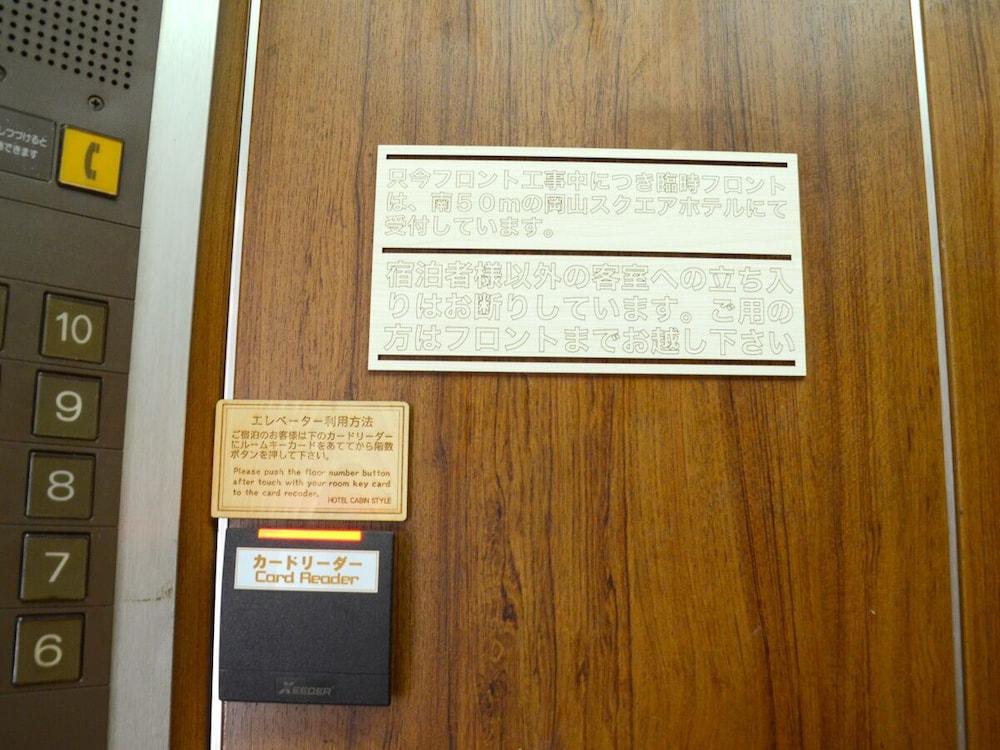 しつづけると
できます
10
9
8
7
6
只今フロント工事中につき臨時フロント
は、南５０ｍの岡山スクエアホテルにて
受付しています。
宿泊者様以外の客室への立ち入
りはお断りしています。ご用の
方はフロントまでお越し下さい
エレベーター利用方法
ご宿泊のお客様は下のカードリーダー
にルームキーカードをあててから階数
ボタンを押して下さい。
Please push the floor number button
after touch with your room key card
to the card recoder.
HOTEL CABIN STYLE
カードリーダー
Card Reader
XEEDER